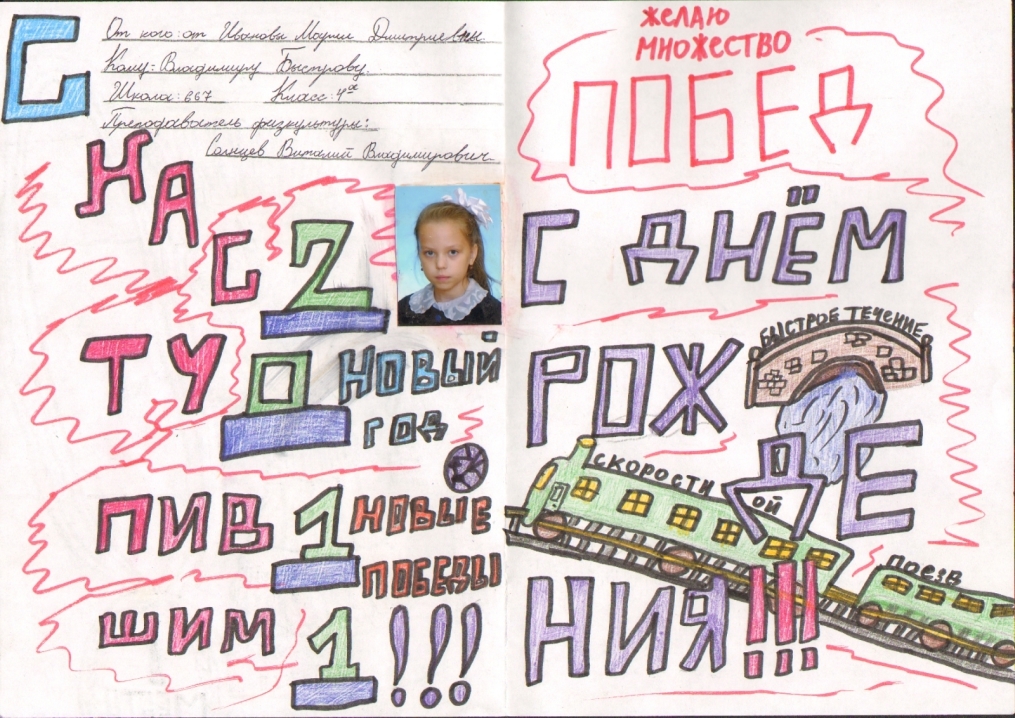 С
От кого: от Ивановы Марии Дмитриевны.
Кому: Владимиру Быстрову.
Школа: 667 Класс: 4а
Преподаватель физкультуры:
Солнцев Виталий Владимирович.
НА
С
ТУ
ПИВ
ШИМ
2
0
1
1
НОВЫЙ
ГОД
НОВЫЕ
ПОБЕДЫ
!!!
ЖЕЛАЮ
МНОЖЕСТВО
ПОБЕД
С ДНЁМ
РОЖ
ДЕ
НИЯ!!!
БЫСТРОЕ ТЕЧЕНИЕ
СКОРОСТНОЙ
ПОЕЗД